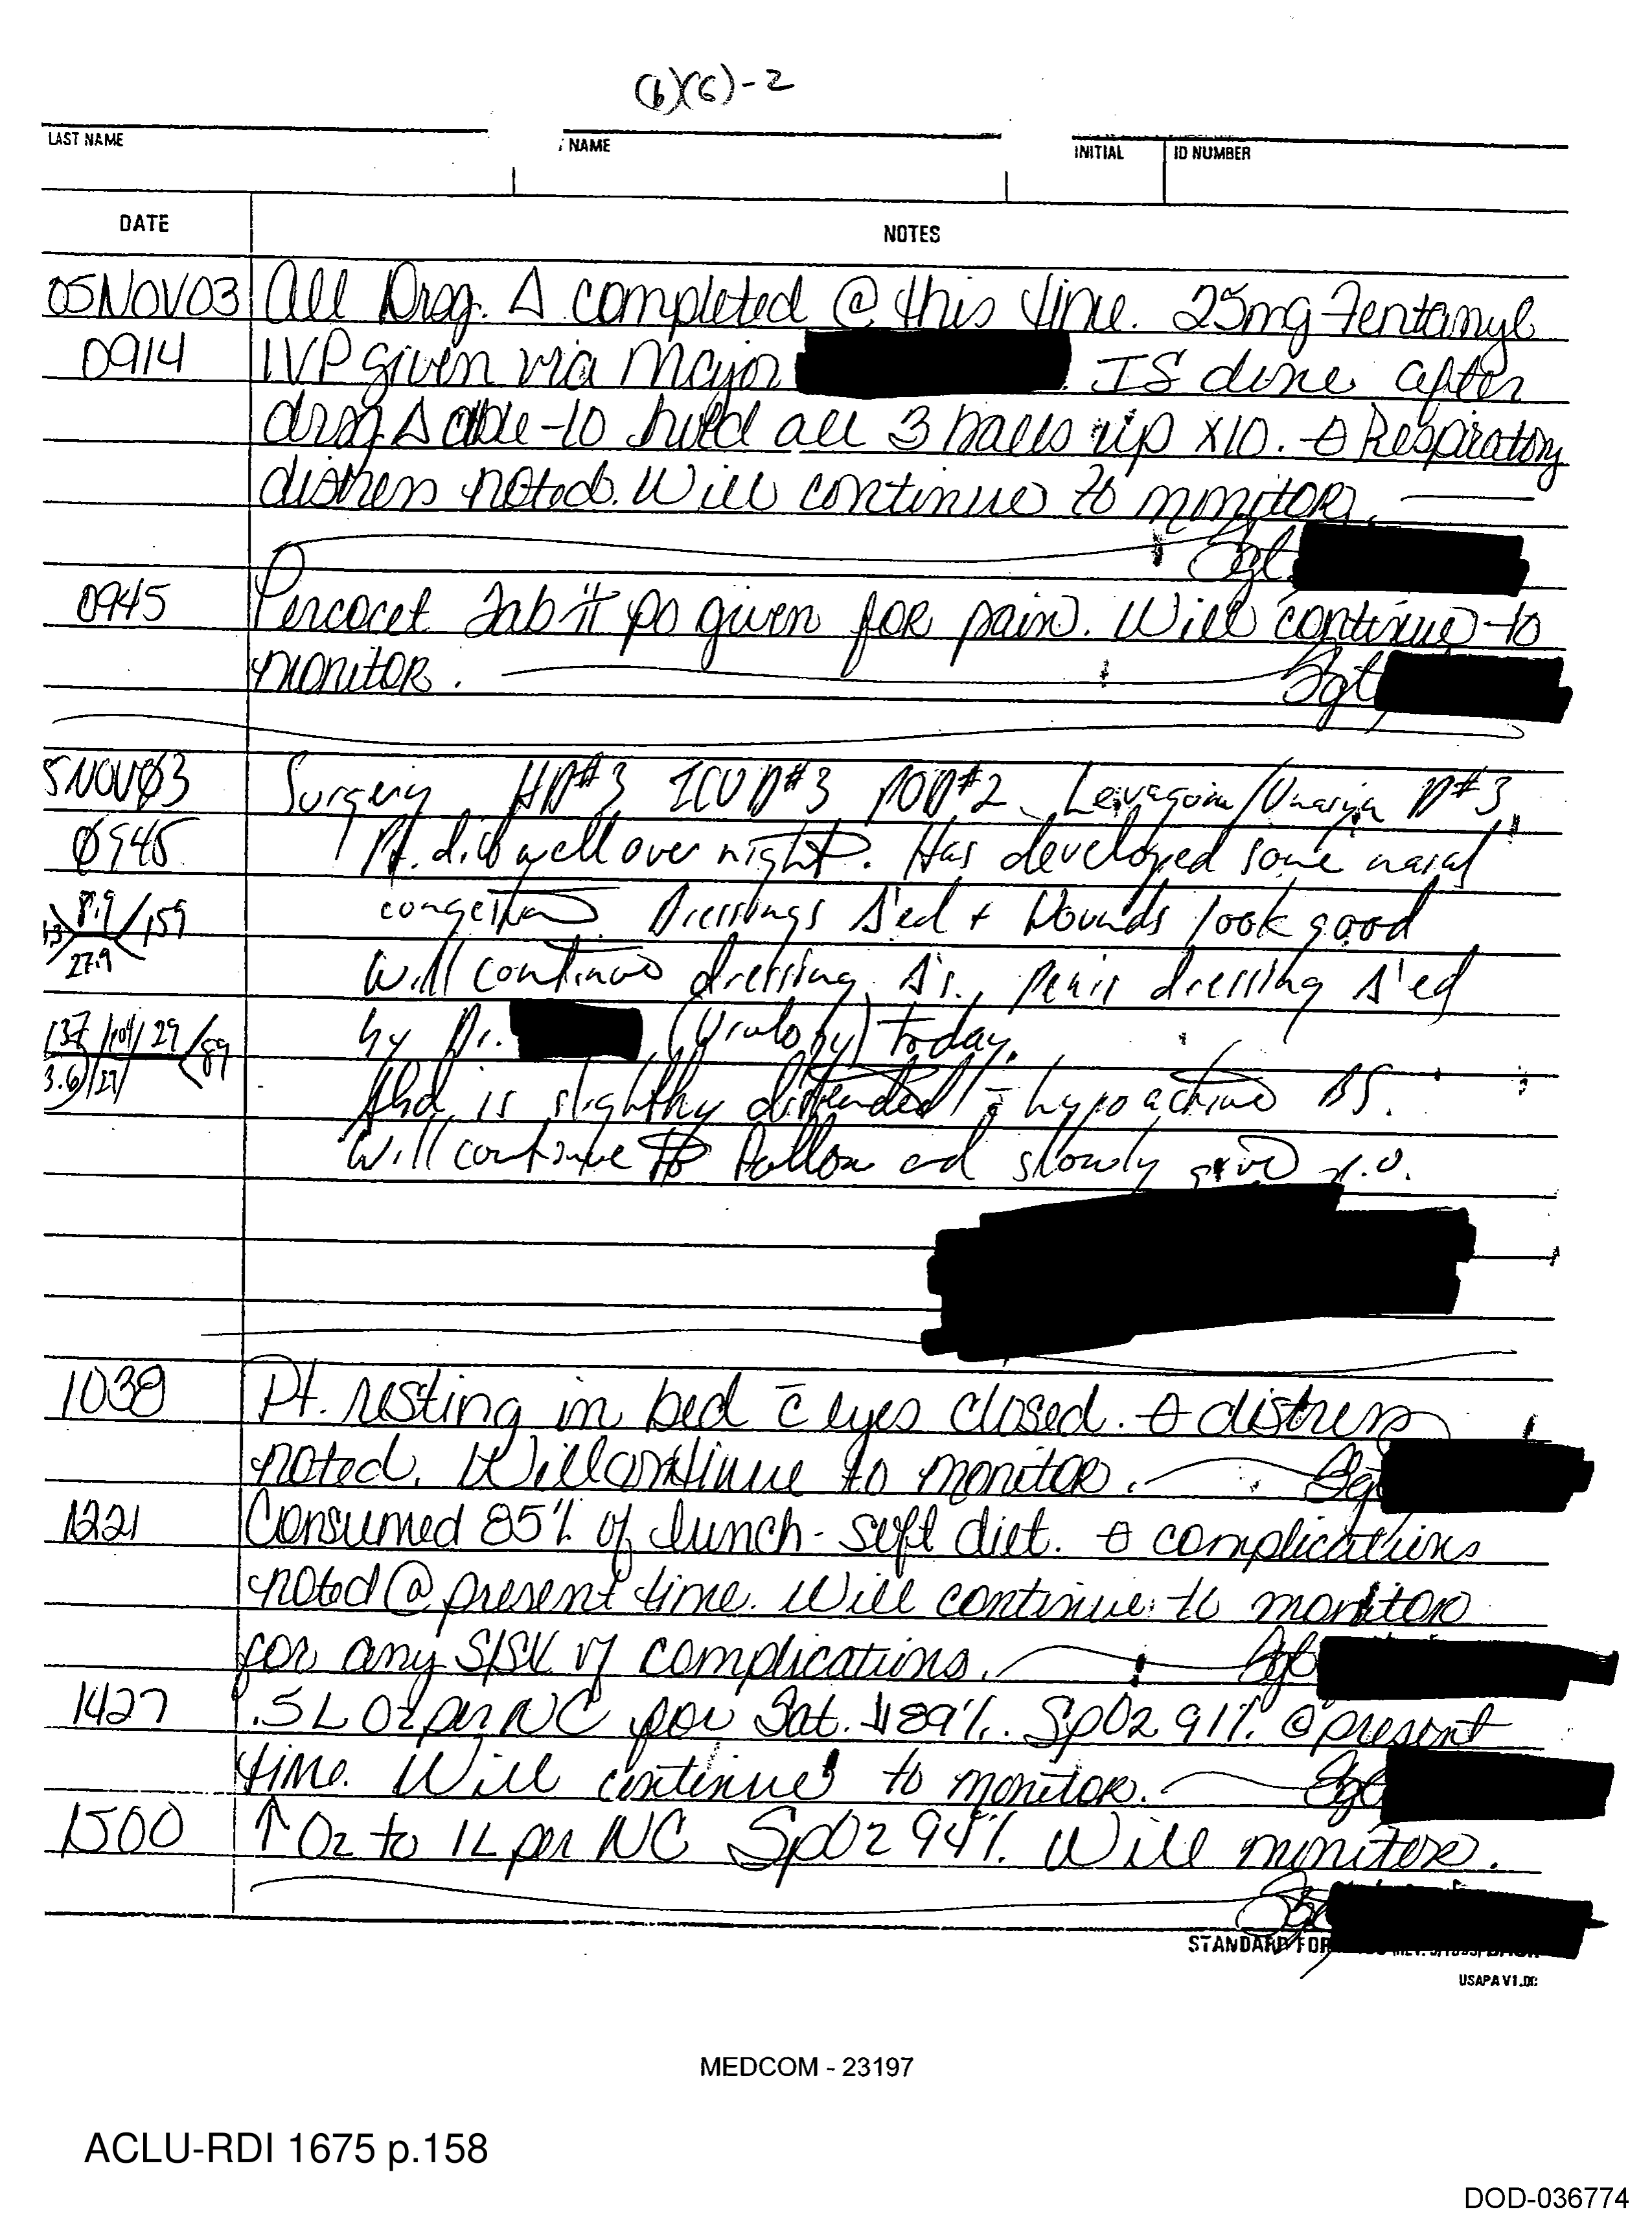 (b)(6)-2
LAST NAME NAME INITIAL ID NUMBER
DATE NOTES
05NOV03 All Drsg. Δ completed @ this time. 25mg Fentanyl
0914 IVP given via Major IS done after
drsg Δ able to hold all 3 balls up x10. ⊖ Respiratory
distress noted. Will continue to monitor.
Sgt.
0945 Percocet Tab ii po given for pain. Will continue to
monitor. Sgt
5NOV03 Surgery HD#3 ICU D#3 POD#2 Levaquin/Unasyn D#3
0945 Pt. did well over night. Has developed some nasal
13 8.9 159 congestion. Dressings Δ'ed + Wounds look good
27.9 Will continue dressing Δ's., Penis dressing Δ'ed
137/104/29/89 by Dr. (Urology) today.
3.6/27/ Abd. is slightly distended hypoactive BS.
Will continue to follow and slowly give p.o.
1038 Pt. resting in bed c̄ eyes closed. ⊖ distress
noted. Will continue to monitor. Sgt
1221 Consumed 85% of lunch - soft diet. ⊖ complications
noted @ present time. Will continue to monitor
for any S/Sx of complications. Sgt
1427 .5L O2 per NC for Sat. ↓89%. SpO2 91% @ present
time. Will continue to monitor. Sgt
1500 ↑ O2 to 1L per NC SpO2 94%. Will monitor.
Sgt
STANDARD FOR
USAPA V1.00
MEDCOM - 23197
ACLU-RDI 1675 p.158
DOD-036774